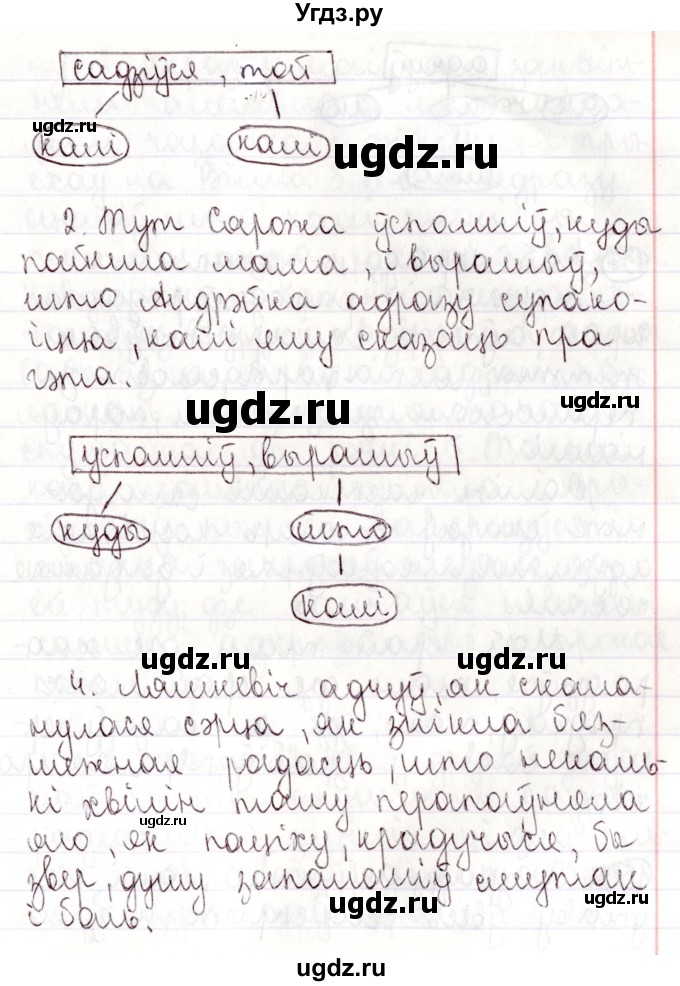 Угдз.ру
садзіўся, той
ugdz.ru
калі
калі
ugdz.ru
2. Тут Сарожа ўспомніў, куды
пайшла мама, вырашыў,
што Андрэйка адразу супако-
іцца, калі яму сказаць пра
гэта.
ugdz.ru
ugdz.ru
успомніў, вырашыў
куды
што
калі
ugdz.ru
ugdz.ru
4. Ляшкевіч адчуў, як скала-
нулася сэрца, як знікла бяз-
межная радасць, што некаль-
кі хвілін таму перапаўняла
ugdz.ru
яго, як паціху, крадучыся, бы
звер, душу запаланіў смутак
і боль.
ugdz.ru
ugdz.ru
ugdz.ru